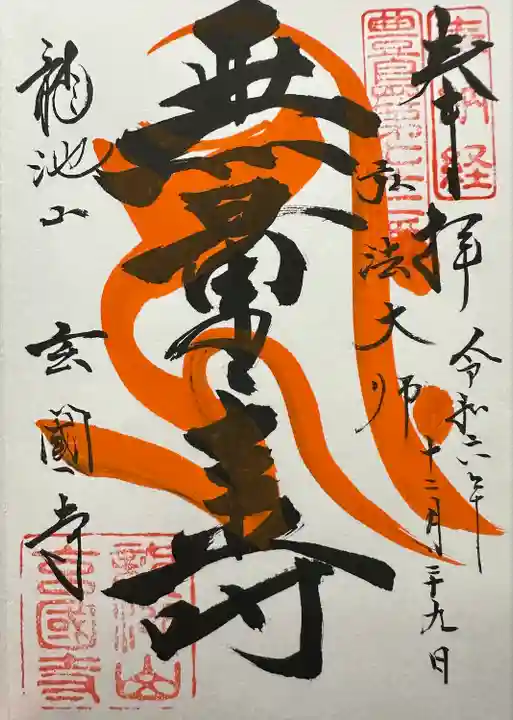 奉拝
奉納経
令和六年
十二月二十九日
豊島第七十二番
弘法大師
無量寿
龍池山
玄国寺
龍池山
玄國寺